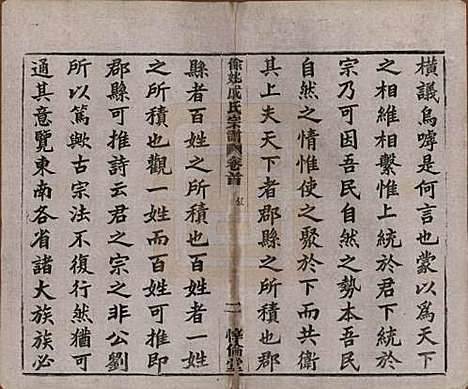 橫議烏嘑是何言也蒙以爲天下
之相維相繫惟上統於君下統於
宗乃可因吾民自然之勢本吾民
自然之情惟使之聚於下而共衞
其上夫天下者郡縣之所積也郡
餘姚成氏宗譜 卷首 二 惇倫堂
縣者百姓之所積也百姓者一姓
之所積也觀一姓而百姓可推即
郡縣可推詩云君之宗之非公劉
所以篤歟古宗法不復行然猶可
通其意覽東南各省諸大族族必